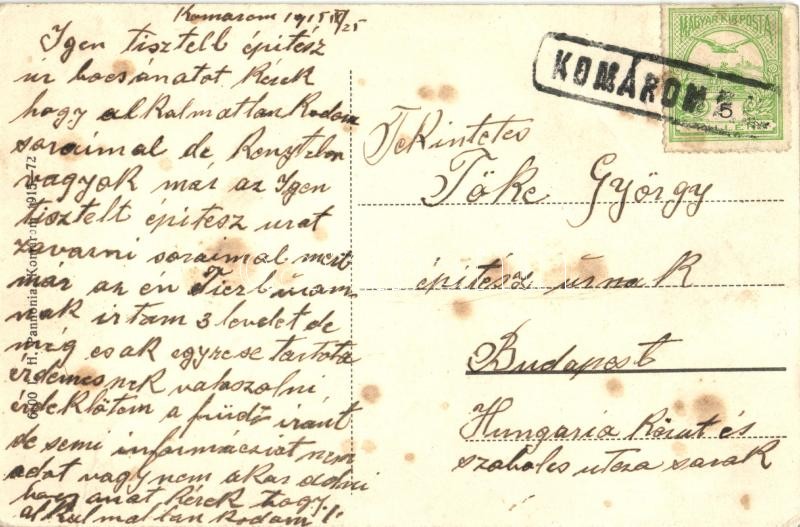 Komárom 1915
Igen tisztelt építész
úr bocsánatot kérek
hogy alkalmatlankodom
soraimal de kénytelen
vagyok már az Igen
tisztelt építész urat
zavarni soraimal mert
már az én uram
nak irtam 3 levelet de
még csak egyre se tartota
érdemesnek valaszolni
érdeklötem a fürdö iránt
de semi informácziot nem
adot vagy nem akar adni
bocsanat kérek hogy
alkalmatlankodom
MAGYAR KIR. POSTA
KOMÁROM
5
Tekintetes
Töke György
építész úrnak
Budapest
Hungária Körut és
szabolcs utcza sarak
H. Pannonia, Komárom 1915—72